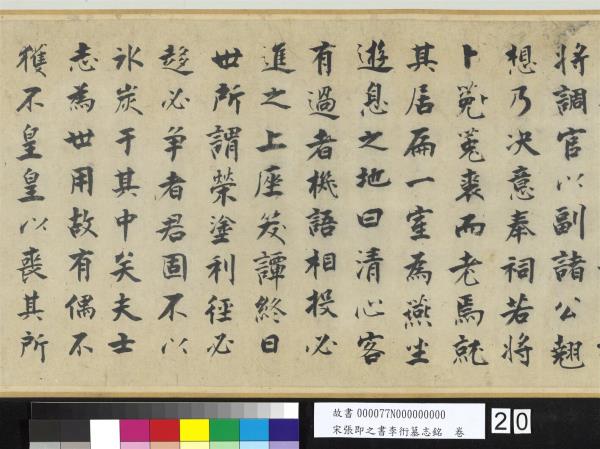 將調官以副諸公翹
想乃决意奉祠若將
卜菟菟裘而老焉就
其居扁一室為燕坐
遊息之地曰清心客
有過者機語相投必
進之上座笑譚終日
世所謂榮塗利徑必
趍必爭者君固不以
氷炭于其中矣夫士
志為世用故有偶不
獲不皇皇以喪其所
故書 000077N000000000
宋張即之書李衎墓志銘 卷
20